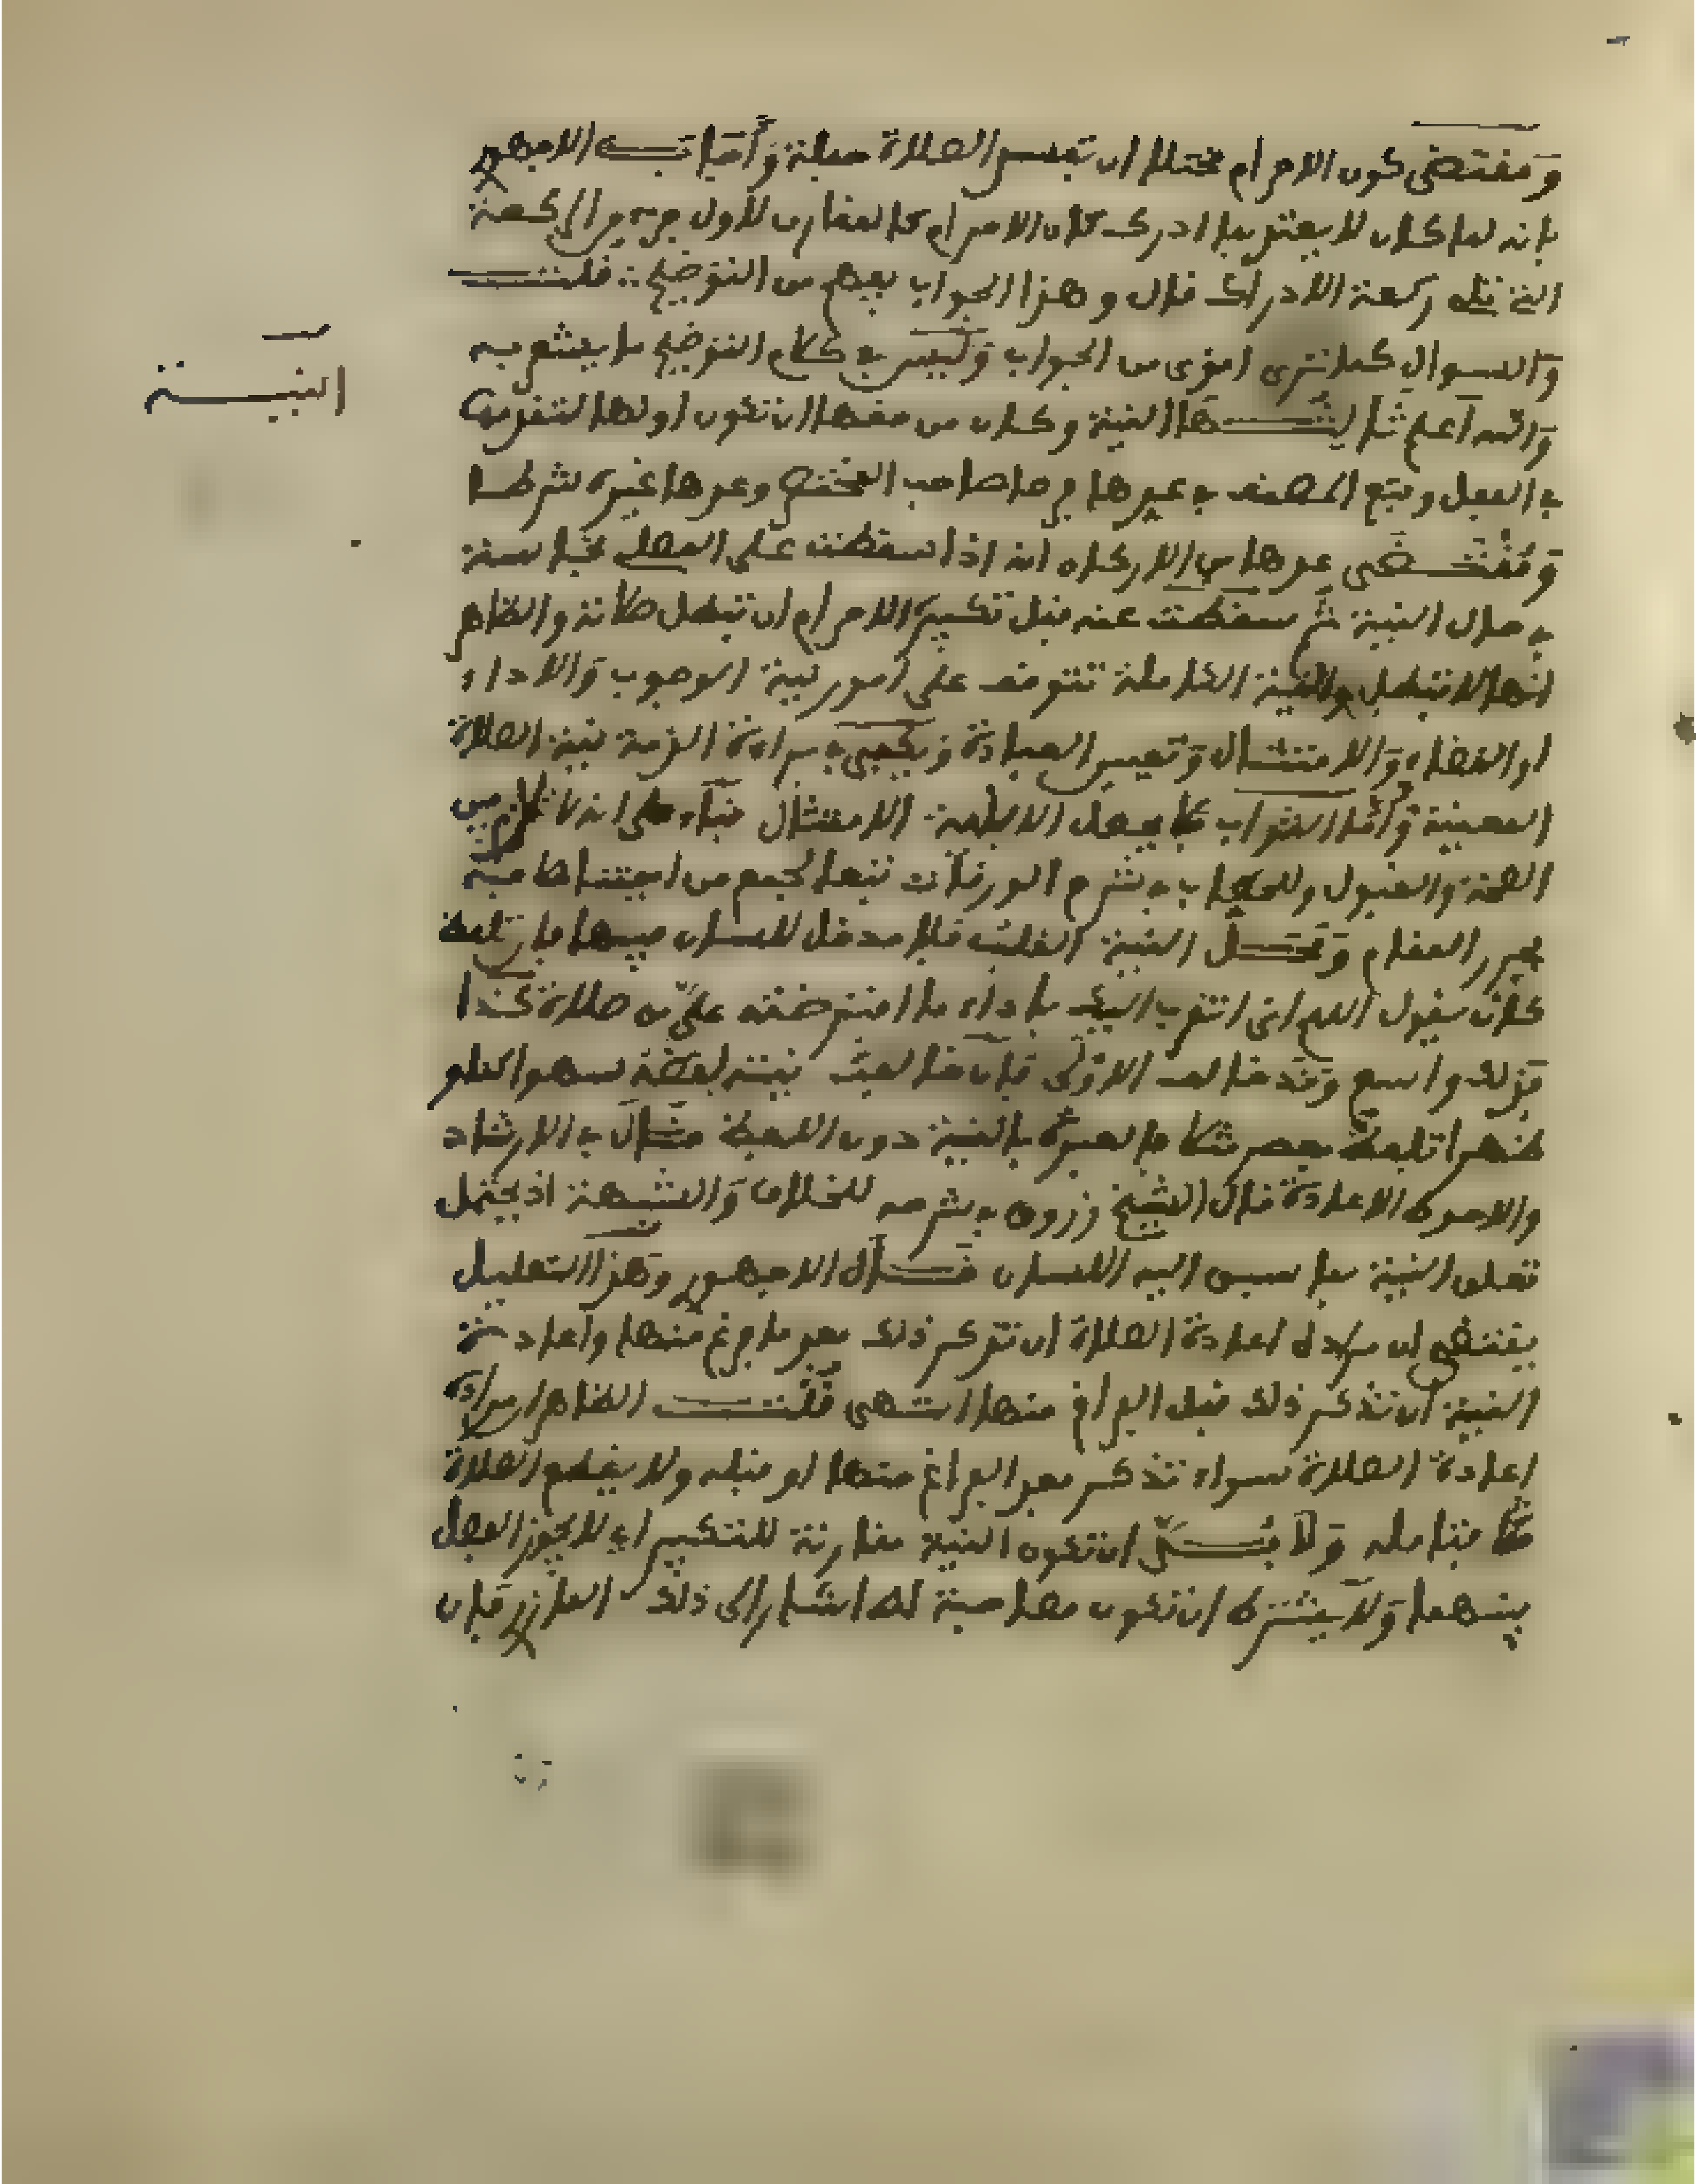 ومقتضى كون الاحرام مختلا ان تفسد الصلاة جملة وأجاب الاجهوري
بانه لما كان لا يعتد بما ادرك كان الاحرام كالمقارن لأول جزء من الركعة
التي تلي ركعة الادراك قال وهذا الجواب يفهم من التوضيح قلت
والسوال كما ترى اقوى من الجواب وليس في كلام التوضيح ما يشعر به
والله أعلم ثالثها النية وكان من حقها ان تكون اولها لتقدمها
في الفعل وتبع المصنف في عدها فرضا صاحب المختصر وعدها غيره شرطا
ومقتضى عدها من الاركان انه اذا سقطت على المصلي نجاسة
في حال النية ثم سقطت عنه قبل تكبيرة الاحرام ان تبطل صلاته والظاهر
انها لا تبطل والنية الكاملة تتوقف على امور نية الوجوب والاداء
او القضاء والامتثال وتعيين العبادة ويكفي في براءة الذمة نية الصلاة
المعينة وأما الثواب فلا يحصل الا بنية الامتثال بناء على انه لا تلازم بين
الصحة والقبول وللحطاب في شرح الورقات تبعا لجمع من
يحرر المقام ومحل النية القلب فلا مدخل للسان فيها فإن تلفظ
كان يقول اللهم اني اتقرب اليك باداء ما افترضته علي من صلاة كذا
فذلك واسع وقد خالف الاولى فإن خالفت نيته لفظه سهوا كناو
ظهرا تلفظ بعصر مثلا فالعبرة بالنية دون اللفظ قال في الارشاد
والاحوط الاعادة قال الشيخ زروق في شرحه للخلاف والشبهة اذ يحتمل
تعلق النية بما سبق اليه اللسان قال الاجهوري وهذا التعليل
يقتضي ان مراده اعادة الصلاة ان تذكر ذلك بعد ما فرغ منها واعادة
النية ان تذكر ذلك قبل الفراغ منها انتهى قلت الظاهر ان مراده
اعادة الصلاة سواء تذكر بعد الفراغ منها او قبله ولا يقطع الصلاة
مثلا فتامله ولا بد ان تكون النية مقارنة للتكبير اي لا يجوز الفصل
بينهما ولا يشترط ان تكون مصاحبة له اشار الى ذلك المازري فإن
النية